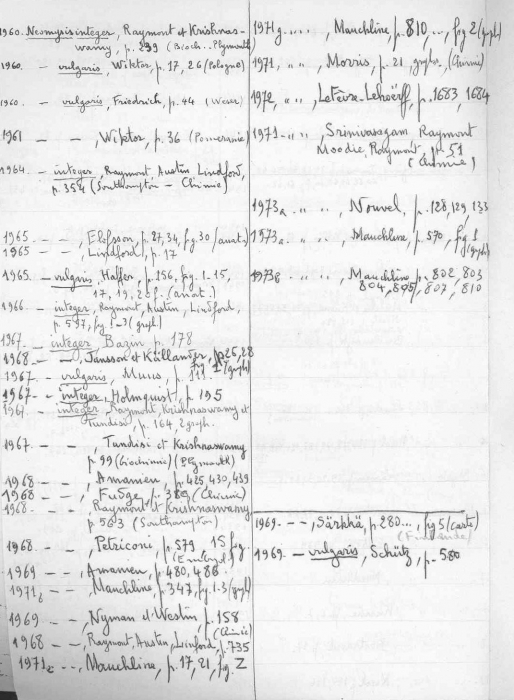 1960. Neomysis integer, Raymont et Krishnas-
wamy, p. 239 (Bioch. Plymouth)
1960. - vulgaris, Wiktor, p. 17, 26 (Pologne)
1960. - vulgaris, Friedrich, p. 44 (Weser)
1961 - -, Wiktor, p. 36 (Pomeranie)
1964. - integer, Raymont, Austin Lindford,
p. 354 (Southampton - Chimie)
1965 - -, Elofsson, p. 27, 34, fig. 30 (anat.)
1965 - -, Lindford, p. 17
1965. vulgaris, Haffer, p. 156, fig. 1-15,
17, 19, 20 f. (anat.)
1966 - integer, Raymont, Austin, Linford,
p. 597, fig. 1-3 (graph)
1967. integer, Bazin p. 178
1968 - -, Jansson et Källander, p. 26, 28
fig 1 (graph)
1967 - vulgaris, Muus, p. 111
1967 - integer, Holmquist, p. 195
1967. integer, Raymont, Krishnaswamy et
Tundisi, p. 164, 2 graph.
1967 - -, Tundisi et Krishnaswamy
p. 99 (biochimie) (Plymouth)
1968 - -, Amanieu, p. 425, 430, 439
1968 - -, Fudge, p. 389 (Chimie)
1968 - Raymont et Krishnaswamy
p. 563 (Southampton)
1968 - -, Petriconi, p. 579 15 fig.
(Embryol.)
1969 - -, Amanieu, p. 480, 488
1971b - -, Mauchline, p. 347, fig. 1-3 (graph)
1969 - -, Nyman et Westin p. 158
(Chimie)
1968 - -, Raymont, Austin, Linford, p. 735
1971c - -, Mauchline, p. 17, 21, fig. 2
1971g " ", Mauchline, p. 810, ..., fig 2 (graph)
1971, " ", Morris, p. 21, graphs, (Chimie)
1972, " ", Lefèvre-Lehoërff, p. 1683, 1684
1971 - " ", Srinivasagam Raymont
Moodie, Raymont, p. 51
(Chimie)
1973a. " ", Nouvel, p. 128, 129, 133
1973a. " ", Mauchline, p. 570, fig 1
(graph)
1973b " ", Mauchline p. 802, 803
804, 805, 807, 810
1969. - -, Särkkä, p. 280..., fig 5 (carte)
(Finlande)
1969. - vulgaris, Schütz, p. 580